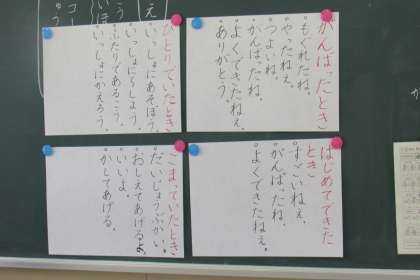 がんばったとき
・もぐれたね。
・やったねぇ。
・つよいね。
・がんばったね。
・よくできたねぇ。
・ありがとう。
ひとりでいたとき
・いっしょにあそぼう。
・いっしょにしよう。
・ふたりであるこう。
・いっしょにかえろう。
はじめてできた
とき
・すごいねぇ。
・がんばったね。
・よくできたねぇ。
こまっていたとき
・だいじょうぶかい。
・おしえてあげるよ。
・いいよ。
・かしてあげる。